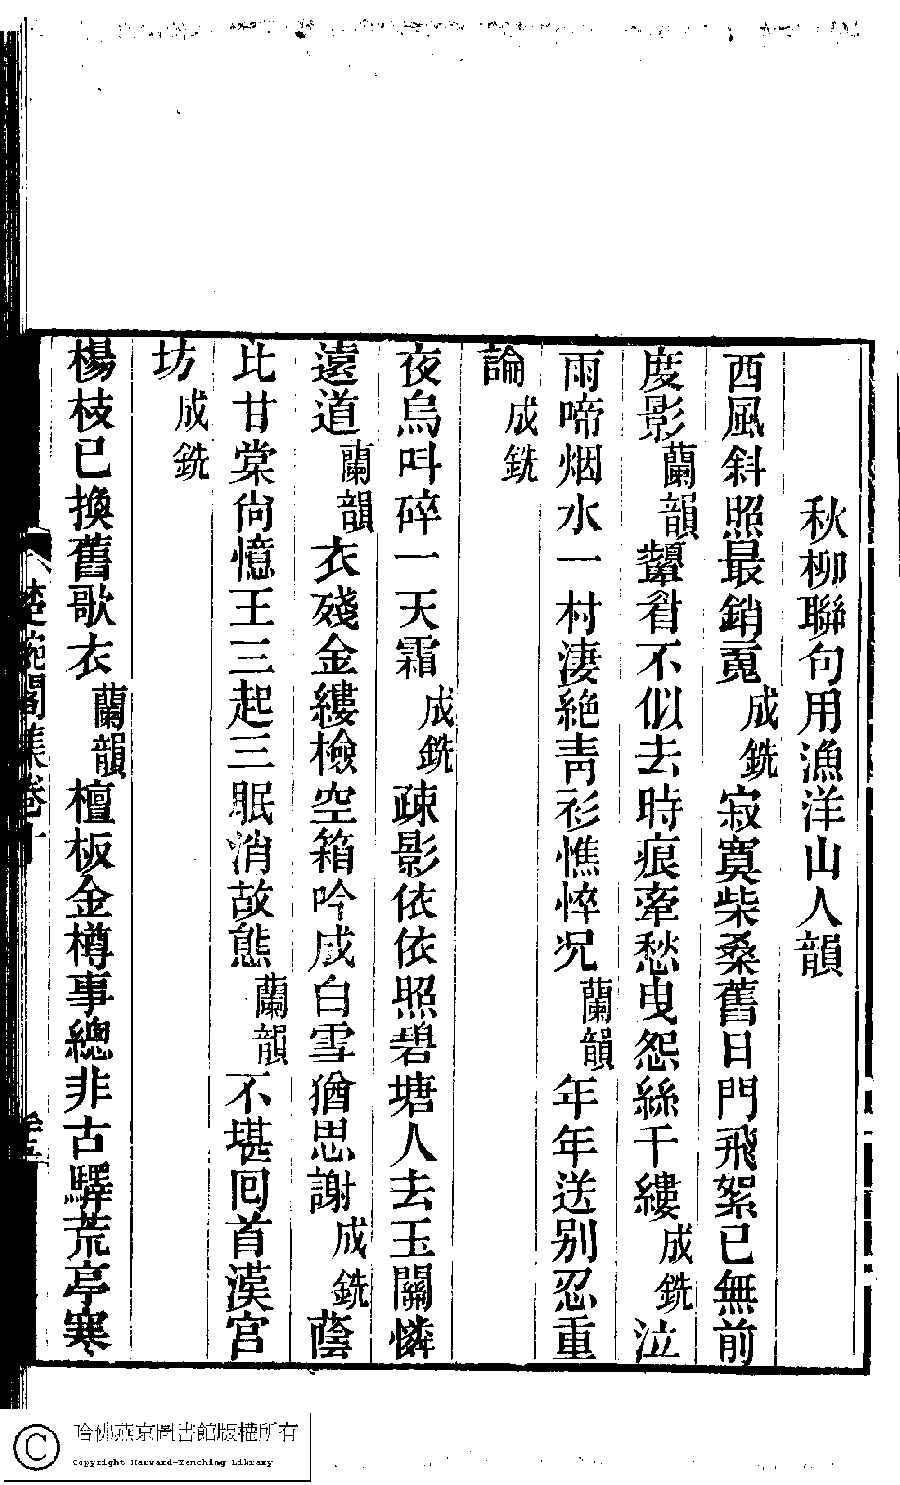 秋柳聯句用漁洋山人韻
西風斜照最銷䰟成銑寂寞柴桑舊日門飛絮已無前
度影蘭韻顰眉不似去時痕牽愁曳怨絲千縷成銑泣
雨啼烟水一村淒絶靑衫憔悴况蘭韻年年送别忍重
論成銑
夜烏呌碎一天霜成銑疎影依依照碧塘人去玉關憐
遠道蘭韻衣殘金縷檢空箱吟成白雪猶思謝成銑蔭
比甘棠尙憶王三起三眠消故態蘭韻不堪回首漢宮
坊成銑
楊枝已換舊歌衣蘭韻檀板金樽事總非古驛荒亭寒
楚畹閣集卷十
哈佛燕京圖書館版權所有
Copyright Harvard-Yenching Library